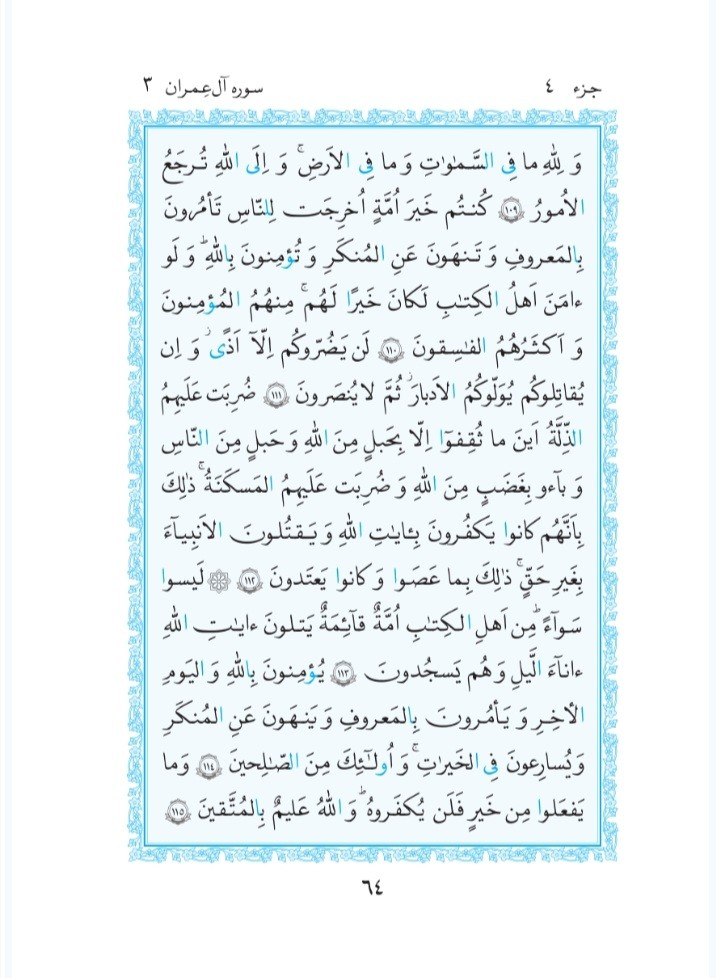 جزء ٤
سوره آل عِمران ٣
وَ لِلّٰهِ ما فِي السَّمٰوٰتِ وَ ما فِي الاَرضِ ۚ وَ اِلَى اللهِ تُرجَعُ
الاُمورُ ١٠٩ كُنتُم خَيرَ اُمَّةٍ اُخرِجَت لِلنّاسِ تَأمُرونَ
بِالمَعروفِ وَ تَنهَونَ عَنِ المُنكَرِ وَ تُؤمِنونَ بِاللهِ ۗ وَ لَو
ءامَنَ اَهلُ الكِتٰبِ لَكانَ خَيرًا لَهُم ۚ مِنهُمُ المُؤمِنونَ
وَ اَكثَرُهُمُ الفٰسِقونَ ١١٠ لَن يَضُرّوكُم اِلّآ اَذًى ۖ وَ اِن
يُقاتِلوكُم يُوَلّوكُمُ الاَدبارَ ثُمَّ لا يُنصَرونَ ١١١ ضُرِبَت عَلَيهِمُ
الذِّلَّةُ اَينَ ما ثُقِفوٓا اِلّا بِحَبلٍ مِنَ اللهِ وَ حَبلٍ مِنَ النّاسِ
وَ بآءو بِغَضَبٍ مِنَ اللهِ وَ ضُرِبَت عَلَيهِمُ المَسكَنَةُ ۚ ذٰلِكَ
بِاَنَّهُم كانوا يَكفُرونَ بِـٔايٰتِ اللهِ وَ يَقتُلونَ الاَنبِيآءَ
بِغَيرِ حَقٍّ ۚ ذٰلِكَ بِما عَصَوا وَ كانوا يَعتَدونَ ١١٢ ۞ لَيسوا
سَوآءً ۗ مِن اَهلِ الكِتٰبِ اُمَّةٌ قآئِمَةٌ يَتلونَ ءايٰتِ اللهِ
ءانآءَ الَّيلِ وَ هُم يَسجُدونَ ١١٣ يُؤمِنونَ بِاللهِ وَ اليَومِ
الأخِرِ وَ يَأمُرونَ بِالمَعروفِ وَ يَنهَونَ عَنِ المُنكَرِ
وَ يُسارِعونَ فِي الخَيرٰتِ ۚ وَ اُولٰٓئِكَ مِنَ الصّٰلِحينَ ١١٤ وَ ما
يَفعَلوا مِن خَيرٍ فَلَن يُكفَروهُ ۗ وَ اللهُ عَليمٌ بِالمُتَّقينَ ١١٥
٦٤